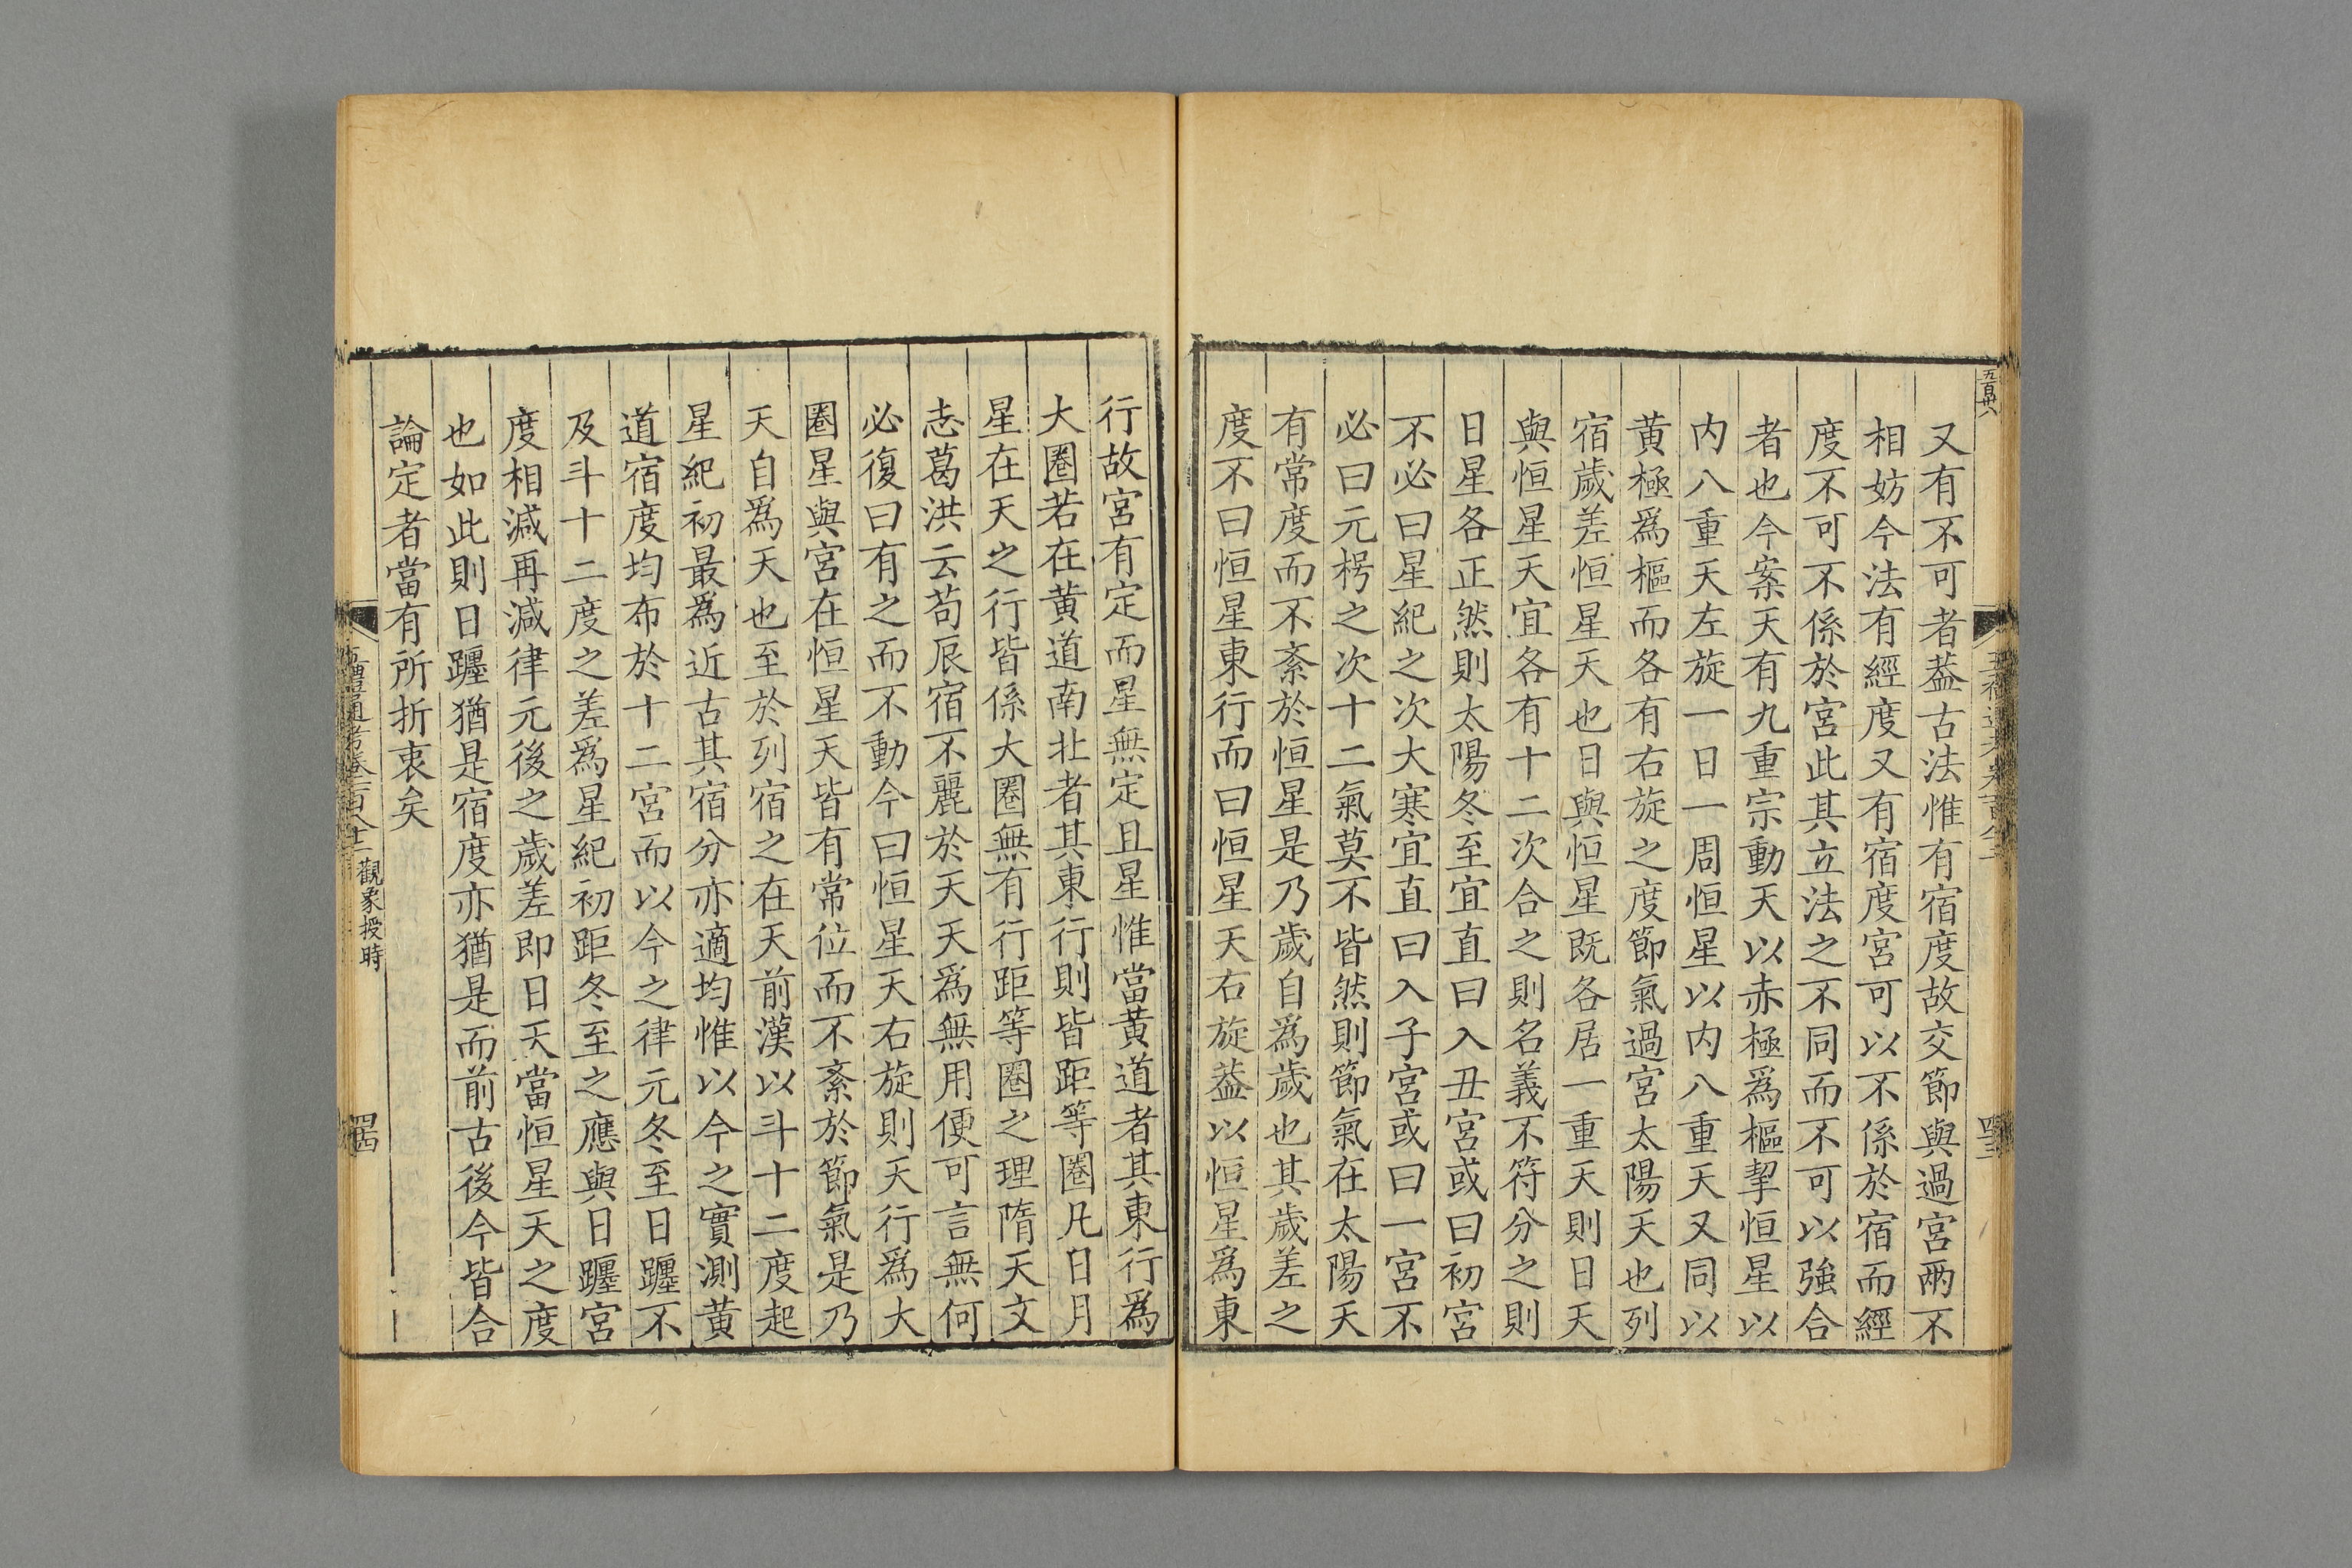 又有不可者蓋古法惟有宿度故交節與過宮兩不
相妨今法有經度又有宿度宮可以不係於宿而經
度不可不係於宮此其立法之不同而不可以強合
者也今案天有九重宗動天以赤極爲樞挈恒星以
内八重天左旋一日一周恒星以内八重天又同以
黄極爲樞而各有右旋之度節氣過宮太陽天也列
宿歲差恒星天也日與恒星既各居一重天則日天
與恒星天宜各有十二次合之則名義不符分之則
日星各正然則太陽冬至宜直曰入丑宮或曰初宮
不必曰星紀之次大寒宜直曰入子宮或曰一宮不
必曰元枵之次十二氣莫不皆然則節氣在太陽天
有常度而不紊於恒星是乃歲自爲歲也其歲差之
度不曰恒星東行而曰恒星天右旋蓋以恒星爲東
行故宮有定而星無定且星惟當黄道者其東行爲
大圈若在黄道南北者其東行則皆距等圈凡日月
星在天之行皆係大圈無有行距等圈之理隋天文
志葛洪云苟辰宿不麗於天天爲無用便可言無何
必復曰有之而不動今曰恒星天右旋則天行爲大
圈星與宮在恒星天皆有常位而不紊於節氣是乃
天自爲天也至於列宿之在天前漢以斗十二度起
星紀初最爲近古其宿分亦適均惟以今之實測黄
道宿度均布於十二宮而以今之律元冬至日躔不
及斗十二度之差爲星紀初距冬至之應與日躔宮
度相減再減律元後之歲差即日天當恒星天之度
也如此則日躔猶是宿度亦猶是而前古後今皆合
論定者當有所折衷矣
觀象授時